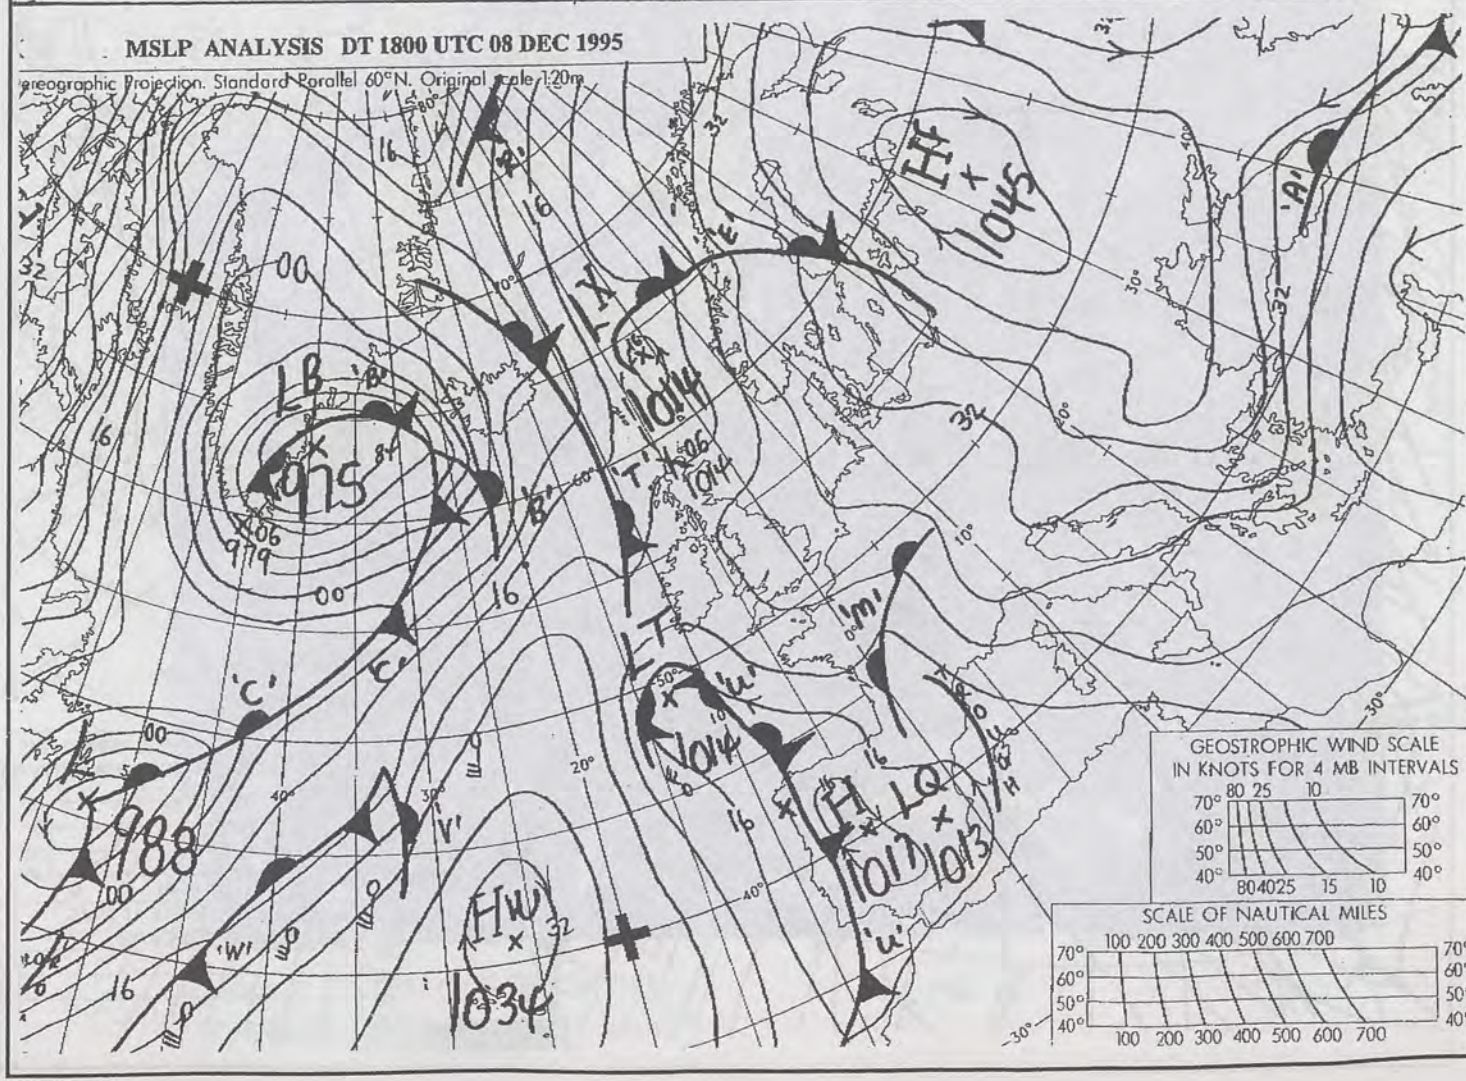 MSLP ANALYSIS DT 1800 UTC 08 DEC 1995
ereographic Projection. Standard Parallel 60°N. Original scale 1:20m
80°
16
'R'
32
32
HF
1045
40°
'A'
32
16
'E'
70°
30°
32
00
LX
1014
LB
'B'
975
16
06
979
'B'
60°
'T'
06
1014
32
10°
00
16
'M'
0°
LT
50°
'U'
1014
'C'
'C'
00
988
00
40°
30°
20°
'V'
16
H
1017
LQ
1013
16
40°
'W'
16
HW
32
1034
'U'
30°
30°
GEOSTROPHIC WIND SCALE
IN KNOTS FOR 4 MB INTERVALS
80 25 10
70° 70°
60° 60°
50° 50°
40° 40°
80 40 25 15 10
SCALE OF NAUTICAL MILES
100 200 300 400 500 600 700
70° 70°
60° 60°
50° 50°
40° 40°
100 200 300 400 500 600 700